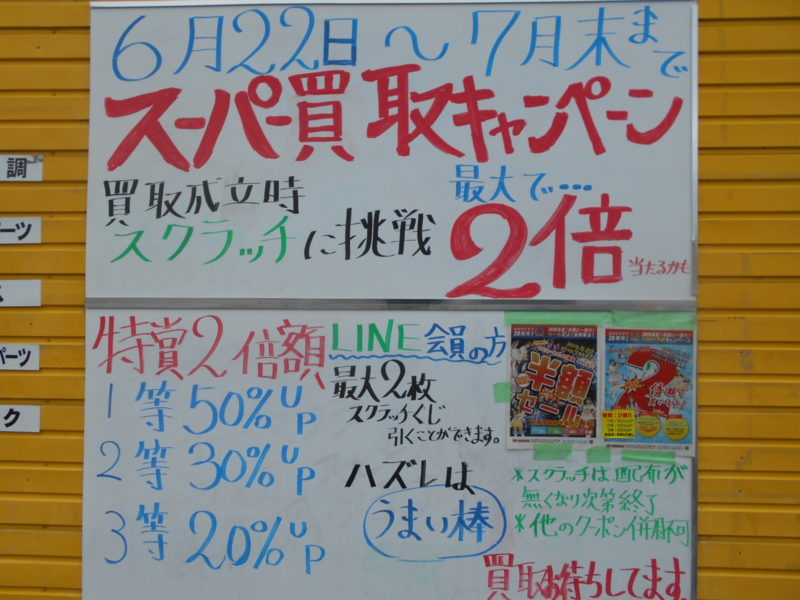 6月22日〜7月末まで
スーパー買取キャンペーン
買取成立時
スクラッチに挑戦
最大で…
2倍
当たるかも
調
ーツ
パーツ
ク
特賞2倍額
1等50%UP
2等30%UP
3等20%UP
LINE会員の方
最大2枚
スクラッチくじ
引くことができます。
ハズレは
うまい棒
半額
セール
2
*スクラッチは配布が
無くなり次第終了
*他のクーポン併用不可
買取お待ちしてます。